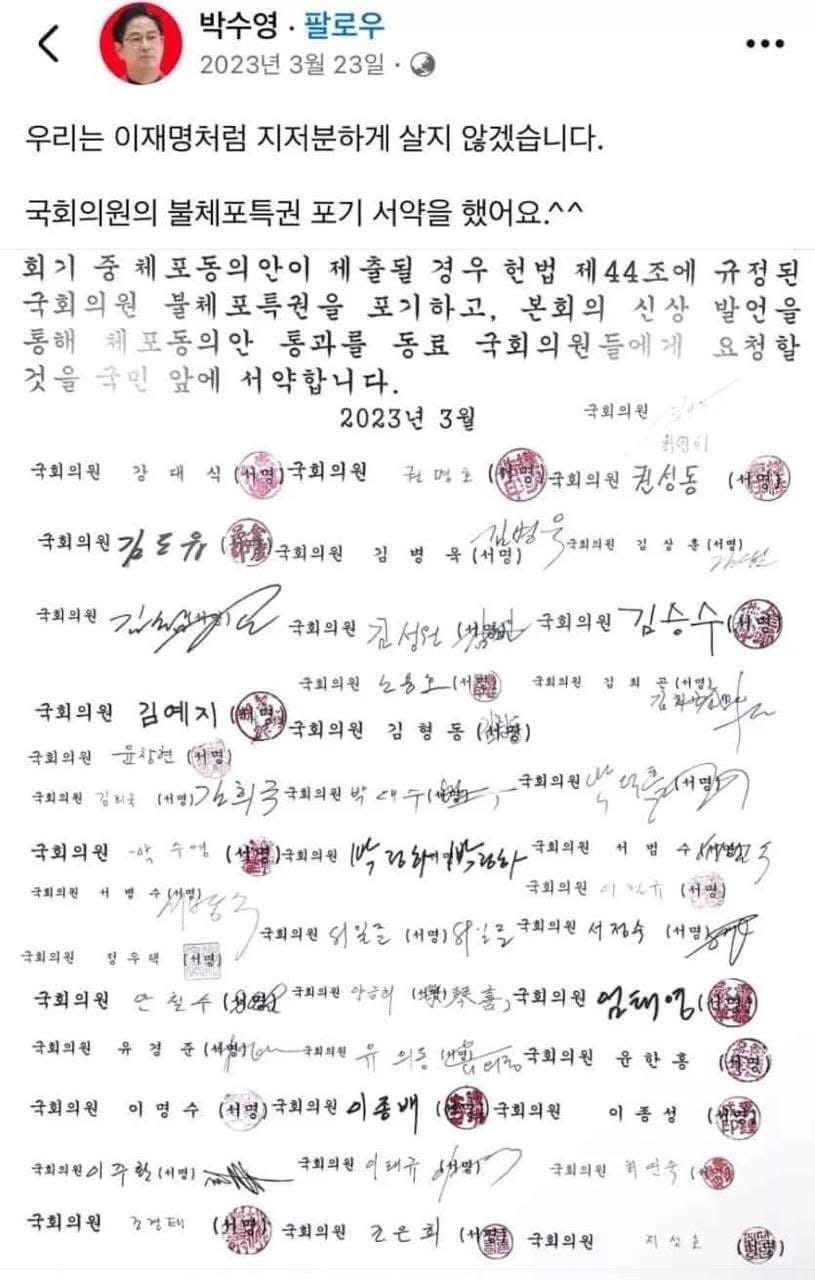 박수영 · 팔로우
2023년 3월 23일 ·
우리는 이재명처럼 지저분하게 살지 않겠습니다.
국회의원의 불체포특권 포기 서약을 했어요.^^
회기 중 체포동의안이 제출될 경우 헌법 제44조에 규정된
국회의원 불체포특권을 포기하고, 본회의 신상 발언을
통해 체포동의안 통과를 동료 국회의원들에게 요청할
것을 국민 앞에 서약합니다.
2023년 3월
국회의원
국회의원 강 대 식 (서명) 국회의원 권 명 호 (서명) 국회의원 권성동 (서명)
국회의원 김도읍 (서명) 국회의원 김 병 욱 (서명) 김병욱 국회의원 김 상 훈 (서명)
국회의원 국회의원 김성원 (서명) 국회의원 김승수 (서명)
국회의원 노용호 (서명) 국회의원 김 희 곤 (서명)
국회의원 김예지 (서명) 국회의원 김 형 동 (서명)
국회의원 윤창현 (서명)
국회의원 김희국 (서명) 김희국 국회의원 박 대 수 (서명) 국회의원 박덕흠 (서명)
국회의원 박 수 영 (서명) 국회의원 박정하 박정하 국회의원 서 범 수 (서명)
국회의원 서 병 수 (서명) 국회의원 (서명)
국회의원 서일준 (서명) 서일준 국회의원 서정숙 (서명)
국회의원 정 우 택 (서명)
국회의원 안 철 수 (서명) 국회의원 양금희 국회의원 엄태영 (서명)
국회의원 유 경 준 (서명) 국회의원 유 의동 (서명) 국회의원 윤 한 홍 (서명)
국회의원 이 명 수 (서명) 국회의원 이종배 (서명) 국회의원 이 종 성 (서명)
국회의원 이 주 환 (서명) 국회의원 이태규 (서명) 국회의원 최연숙 (서명)
국회의원 조경태 (서명) 국회의원 조은희 (서명) 국회의원 지 성 호 (서명)